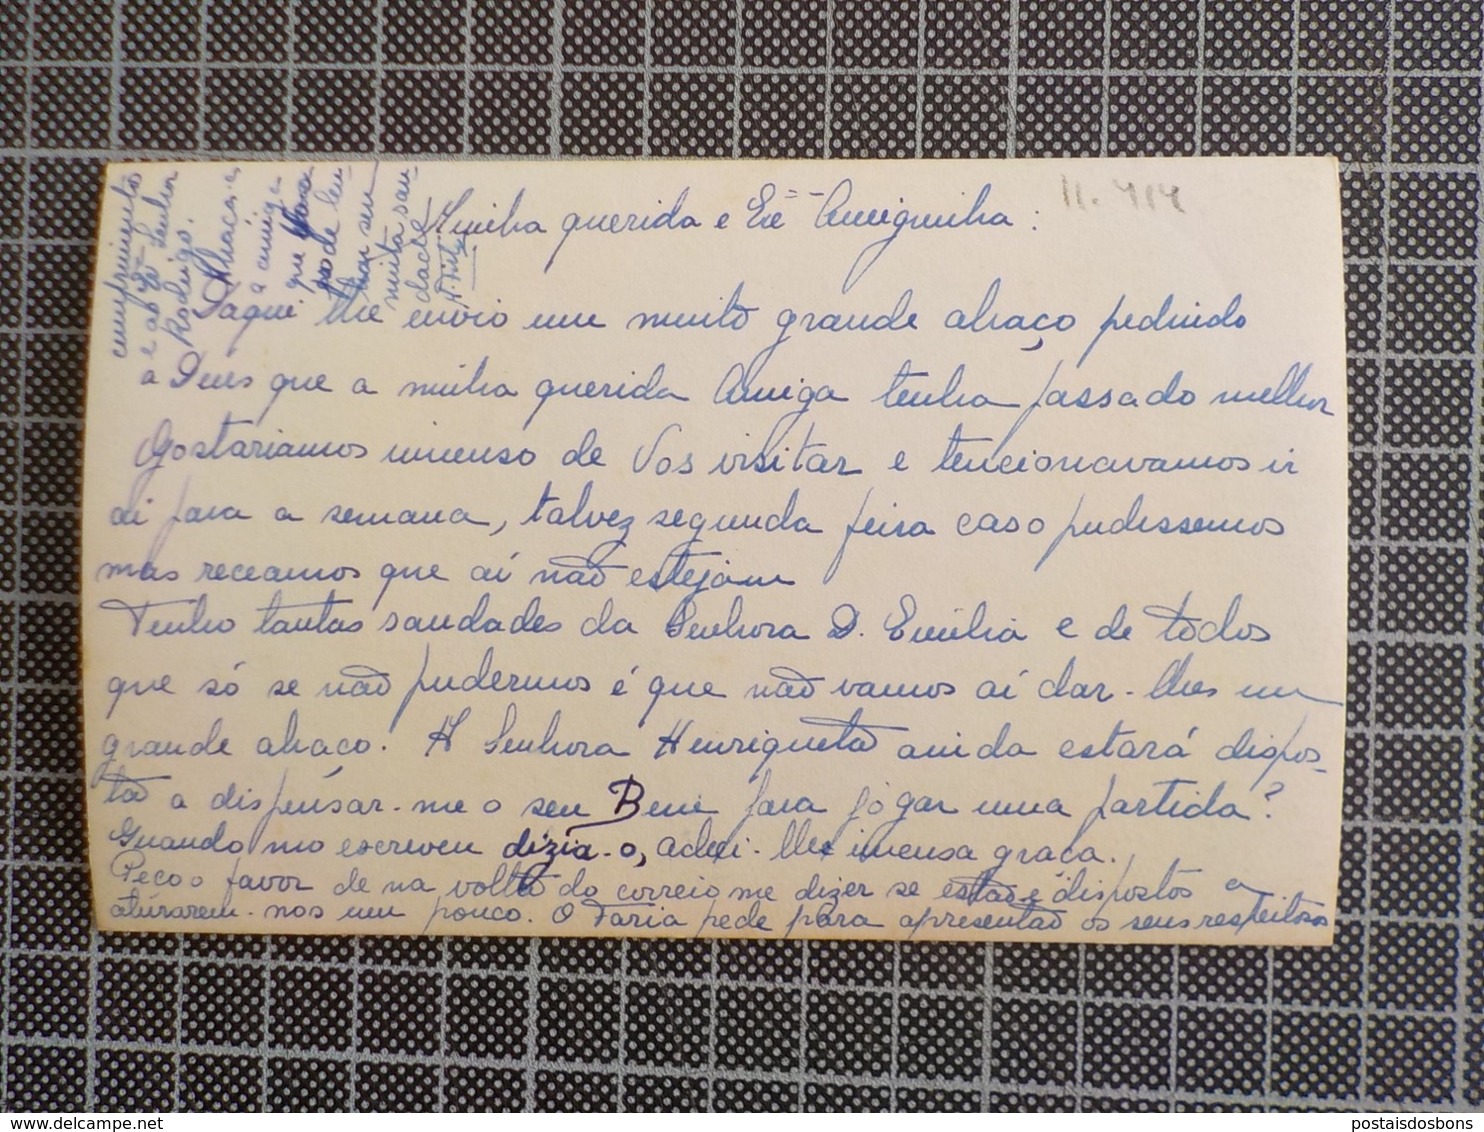 11.414
Minha querida e Exª Amiguinha:
Daqui lhe envio um muito grande abraço pedindo
a Deus que a minha querida Amiga tenha passado melhor
Gostariamos imenso de Vos visitar e tencionavamos ir
aí para a semana, talvez segunda feira caso pudessemos
mas receamos que aí não estejam
Tenho tantas saudades da Senhora D. Emilia e de todos
que só se não pudermos é que não vamos aí dar-lhes um
grande abraço. A Senhora Henriqueta ainda estará dispos-
ta a dispensar-me o seu Bem para jogar uma partida?
Quando mo escreveu dizia-o, achei-lhe imensa graça.
Peço o favor de na volta do correio me dizer se estão dispostos a
aturarem-nos um pouco. O Faria pede para apresentar os seus respeitosos
cumprimentos
e ao Senhor
Rodrigo.
Abraça-a
a amiga
que
pode ser
sem
muita sau-
dade